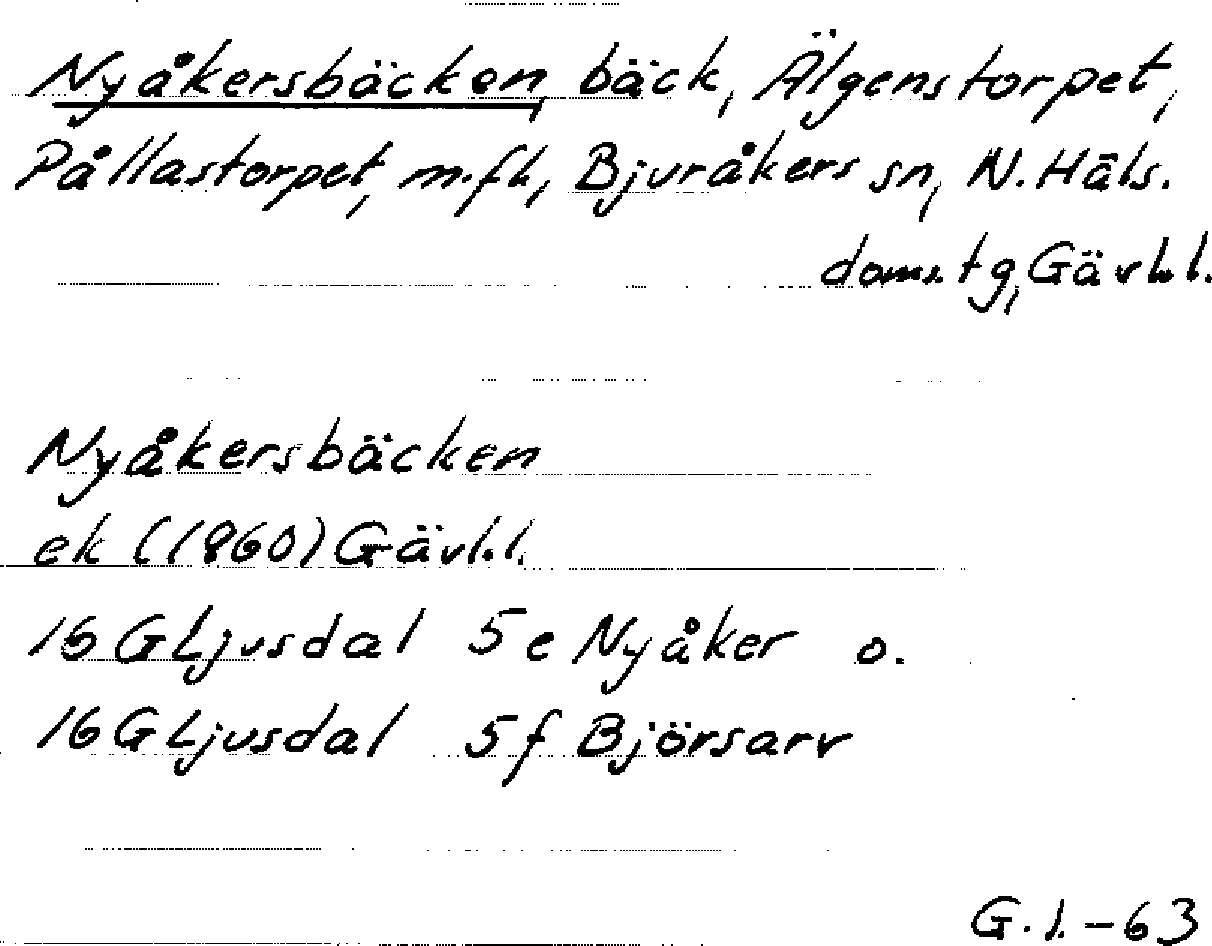 Nyåkersbäcken, bäck, Älgenstorpet,
Pållastorpet, m.fl., Bjuråkers sn, N. Häls.
doms.tg, Gävl.l.
Nyåkersbäcken
ek (1960) Gävl.l.
16 G Ljusdal 5 e Nyåker o.
16 G Ljusdal 5 f Björsarv
G.l. - 63